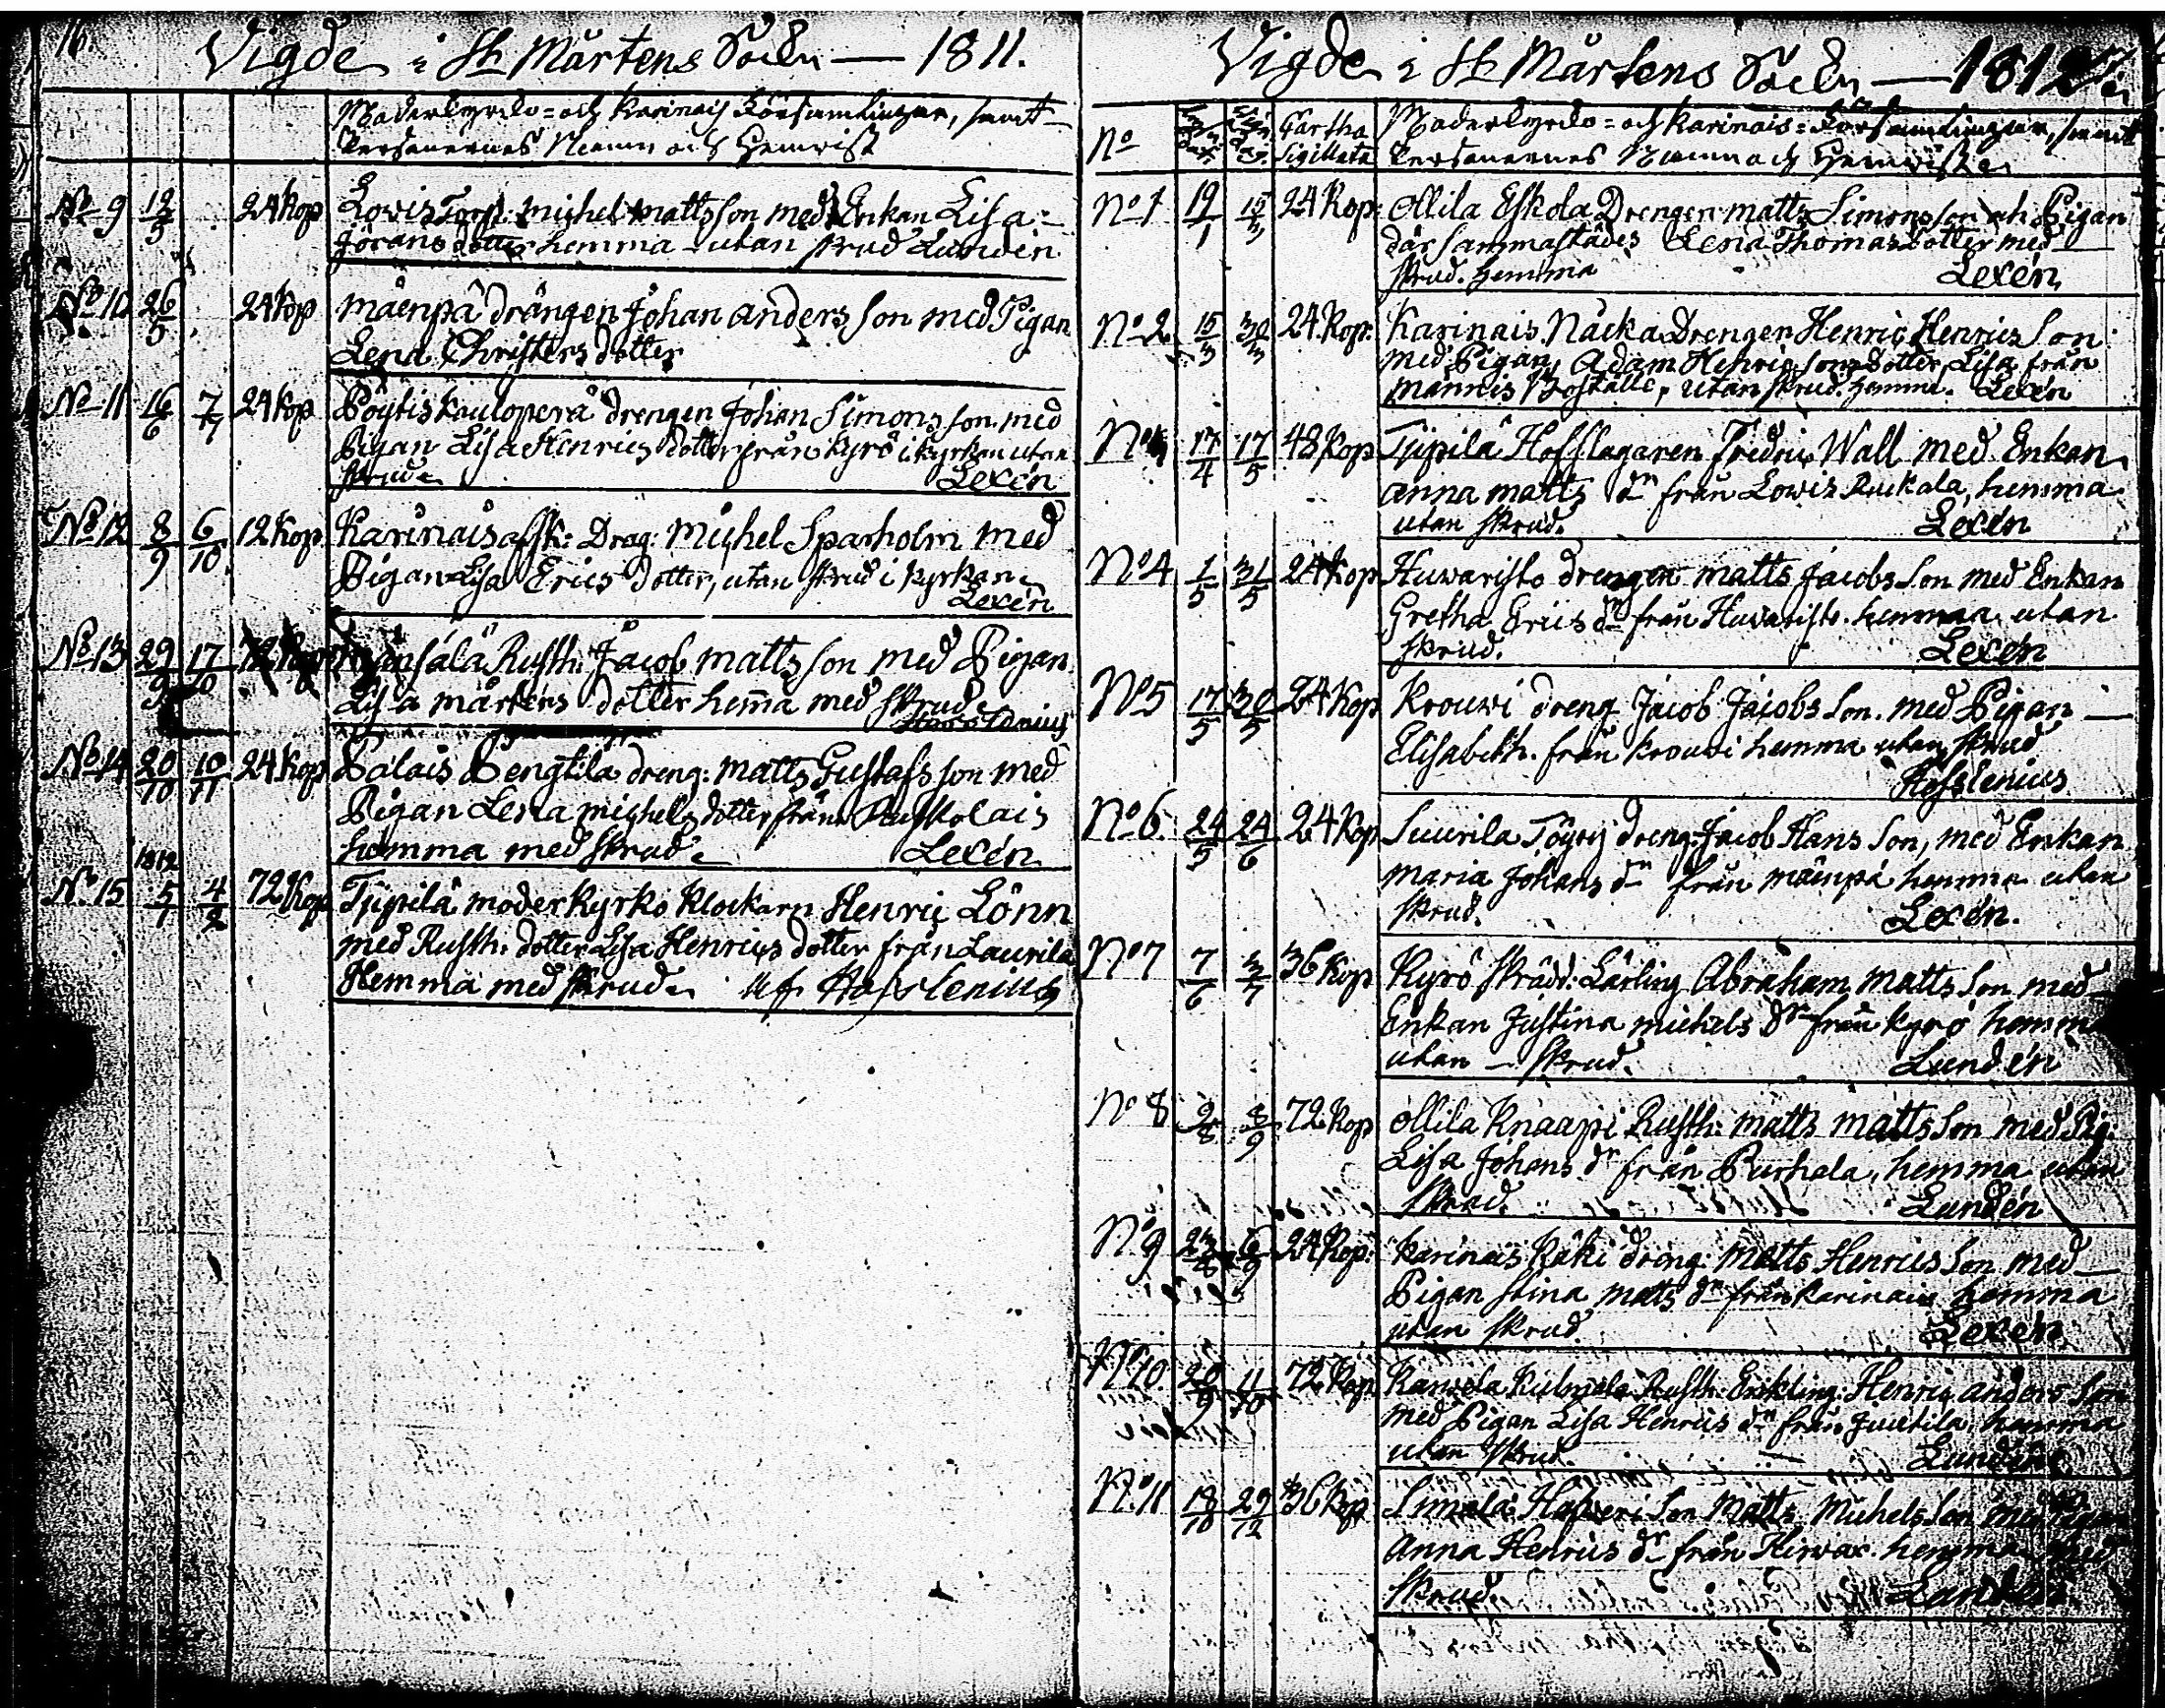 16.
Vigde i St Mårtens Sokn — 1811.
Moderkyrko= och Karinais Församlingar, samt
Personernes Namn och Hemvist
No 9 12/5 24 Kop Lowis Torp: Michel Mattsson med Enkan Lisa
Jörans dotter hemma utan skrud Lundén
No 10 26/5 24 Kop Mäenpä drängen Johan Andersson med Pigan
Lena Christers dotter
No 11 16/6 7/7 24 Kop Pöytis Kauloperä drengen Johan Simons son med
Pigan Lisa Henrics dotter från Kyrö i kyrkan utan
skrud Lexén
No 12 8/9 6/10 12 Kop Karinais afsk: Drag: Michel Sparholm med
Pigan Lisa Erics dotter, utan skrud i kyrkan
Lexén
No 13 29/9 17/10 Rusth: Jacob Matts son med Pigan
Lisa Mårtens dotter hemma med skrud
No 14 20/10 10/11 24 Kop Palais Pengtila dreng: Matts Gustafs son med
Pigan Lena Michels dotter från Ruskolais
hemma med skrud Lexén
1812
No 15 5/1 4/2 72 Kop Tjipilä moderkyrko Klockarn Henric Lönn
med Rusth: dotter Lisa Henrics dotter från Laurila
Hemma med skrud Hofslenius
Vigde i St Mårtens Sokn — 1812
No Cartha Sigillata Moderkyrko= och Karinais= Församlingar, samt
Personernes Namn och Hemvist
No 1 19/1 15/3 24 Kop: Ollila Eskola Drengen Matts Simons son och Pigan
där sammastädes Lena Thomas dotter med
skrud. hemma Lexén
No 2 15/3 30/3 24 Kop: Karinais Näcka Drengen Henric Henrics Son
med Pigan, Adam Henricsons Dotter Lisa från
Männis Boställe, utan skrud. hemma. Lexén
No 17/4 17/5 48 Kop Tjipilä Hofslagaren Fredric Wall med Enkan
Anna Matts dr från Lowis Ruckala, hemma
utan skrud. Lexén
No 4 1/5 31/5 24 Kop Huwaristo drengen Matts Jacobs Son med Enkan
Gretha Erics dr från Huwaristo hemma utan
skrud. Lexén
No 5 17/5 30/5 24 Kop Krouwi dreng Jacob Jacobs Son. med Pigan —
Elisabeth. från Krouwi hemma utan skrud
Hofslenius
No 6 24/5 24/6 24 Kop Suurila Töyry dreng: Jacob Hans Son, med Enkan
Maria Johans dr från Mäenpä hemma utan
skrud. Lexén.
No 7 7/6 3/7 36 Kop Kyrö skrädd: Lärling Abraham Matts Son med
Enkan Justina Michels dr från Kyrö hemma
utan — skrud. Lundén
No 8 2/8 8/9 72 Kop Ollila Knaapi Rusth: Matts Matts Son med Pig:
Lisa Johans dr från Purhala, hemma utan
skrud. Lundén
No 9 23/8 6/9 24 Kop: Karinais Käki dreng: Matts Henrics Son med —
Pigan Stina Matts dr från Karinais hemma
utan skrud Lexén
No 10 20/9 11/10 72 Kop Rusth: Enkling: Henric Anders Son
med Pigan Lisa Henrics dr från Juutila, hemma
utan skrud. Lundén
No 11 18/10 29/12 36 Kop Simala Son Matts Michels Son med Pigan
Anna Henrics dr från Hirvas. hemma med
skrud. Lundén